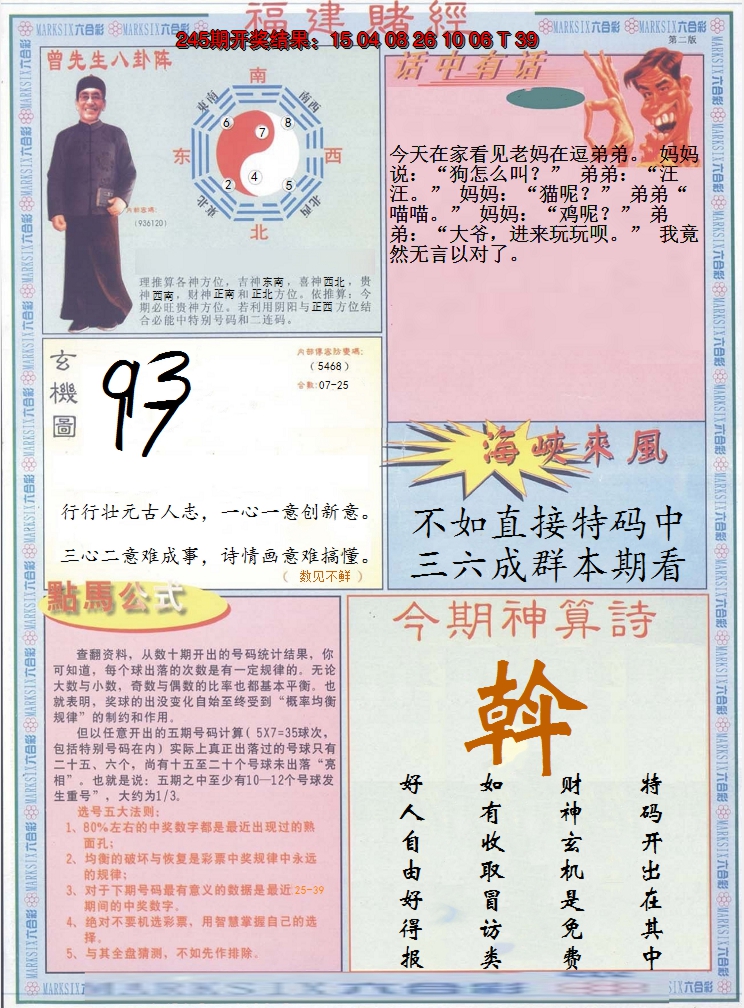 福建賭經
245期开奖结果：15 04 08 26 10 06 T 39
第二版
曾先生八卦阵
南
东南
南西
6
7
8
东
西
2
4
5
东北
北西
北
内部密碼：
（936120）
理推算各神方位，吉神东南，喜神西北，贵
神西南，财神正南和正北方位。依推算：今
期必旺贵神方位。若利用阴阳与正西方位结
合必能中特别号码和二连码。
话中有话
今天在家看见老妈在逗弟弟。 妈妈
说：“狗怎么叫？” 弟弟：“汪
汪。” 妈妈：“猫呢？” 弟弟“
喵喵。” 妈妈：“鸡呢？” 弟
弟：“大爷，进来玩玩呗。” 我竟
然无言以对了。
玄機圖
93
（5468）
合数:07-25
行行壮元古人志，一心一意创新意。
三心二意难成事，诗情画意难搞懂。
（ 数见不鲜 ）
海峽來風
不如直接特码中
三六成群本期看
點馬公式
查翻资料，从数十期开出的号码统计结果，你
可知道，每个球出落的次数是有一定规律的。无论
大数与小数，奇数与偶数的比率也都基本平衡。也
就表明，奖球的出没变化自始至终受到“概率均衡
规律”的制约和作用。
但以任意开出的五期号码计算( 5X7=35球次，
包括特别号码在内) 实际上真正出落过的号球只有
二十五、六个，尚有十五至二十个号球未出落“亮
相”。也就是说：五期之中至少有10—12个号球发
生重号”，大约为1/3。
选号五大法则：
1、80%左右的中奖数字都是最近出现过的熟
面孔；
2、均衡的破坏与恢复是彩票中奖规律中永远
的规律；
3、对于下期号码最有意义的数据是最近 25-39
期间的中奖数字。
4、绝对不要机选彩票，用智慧掌握自己的选
择。
5、与其全盘猜测，不如先作排除。
今期神算詩
斡
特码开出在其中
财神玄机是免费
如有收取冒访类
好人自由好得报
MARKSIX六合彩